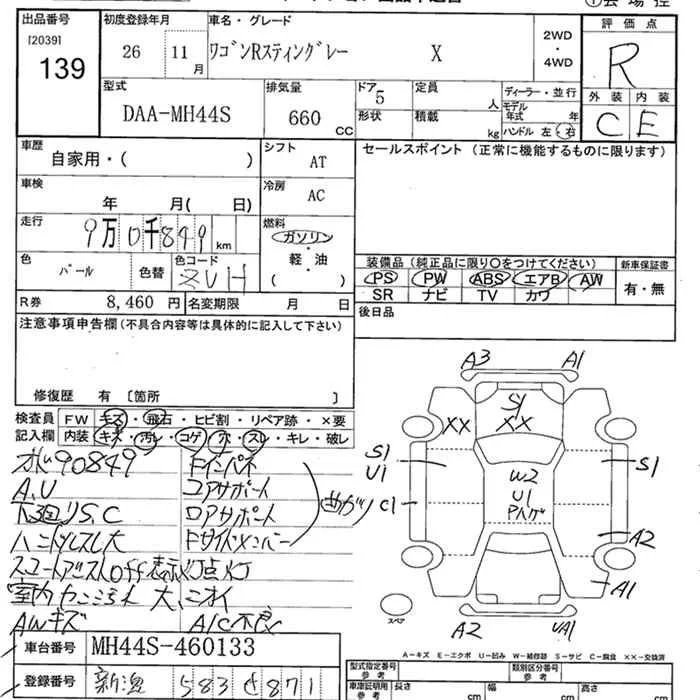 出品番号 初度登録年月 車名・グレード 2WD・4WD 評価点
[2039]
139 26 11月 ワゴンRスティングレー X R
型式 排気量 ドア 定員 人 ディーラー・並行 外装 内装
DAA-MH44S 660 CC 5 形状 積載 kg モデル年式 年 ハンドル 左・右 C E
車歴 自家用・( ) シフト AT セールスポイント (正常に機能するものに限ります)
車検 年 月( 日) 冷房 AC
走行 9万0千849 km 燃料 ガソリン・軽・油 ( )
色 パール 色替 色コード ZVH
装備品 (純正品に限り〇をつけてください) 新車保証書
PS PW ABS エアB AW 有・無
SR ナビ TV カワ
R券 8,460円 名変期限 月 日 後日品
注意事項申告欄 (不具合内容等は具体的に記入して下さい)
修復歴 有 〔箇所 〕
検査員 FW キズ・飛石・ヒビ割・リペア跡・×要
記入欄 内装 キズ・汚レ・コゲ・穴・スレ・キレ・破レ
オド90849 Fインパネ
A,U コアサポート
下回りS,C ロアサポート
ハンドルスレ大 Fサイドメンバー 曲がり
off表示灯点灯
室内 大、ニオイ
AWキズ A/C不良
A3 A1
S1
XX XX
S1 U1 S1
W2
U1
C1
A2
A1
スペア
A2 UA1
A-キズ E-エクボ U-凹み W-補修跡 S-サビ C-腐食 ××-交換済
車台番号 MH44S-460133
型式指定番号 参考 類別区分番号 参考
登録番号 新潟 583 871
車庫証明用 参考 長さ cm 幅 cm 高さ cm